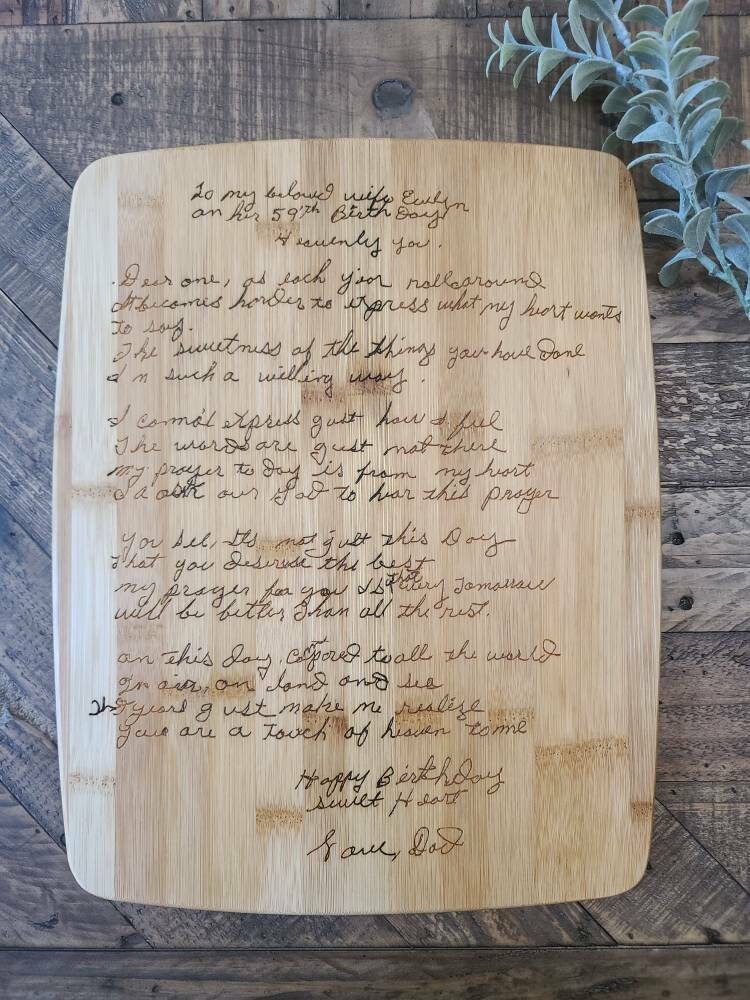 To my beloved wife Evelyn
on her 59th Birth Day
Heavenly you.
Dear one, as each year roll around
It becomes harder to express what my heart wants
to say.
The sweetness of the things you have Done
In such a willing way.
I cannot express just how I feel
The words are just not there
my prayer to Day is from my heart
I ask our God to hear this prayer
You see, Its not just this Day
That you deserve the best
my prayer for you Is that every Tomorrow
will be better Than all the rest.
on this day, to all the world
In air, on land and sea
years just make me realize
You are a Touch of heaven to me
Happy BirthDay
Sweet Heart
Love, Dad